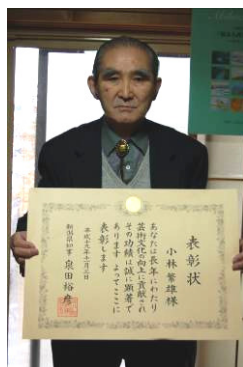 表彰状
小林繁雄様
あなたは長年にわたり
芸術文化の向上に貢献され
その功績は誠に顕著で
あります よってここに
表彰します
平成十八年十一月三日
新潟県知事 泉田裕彦